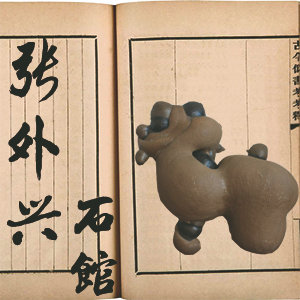 张外兴
石館